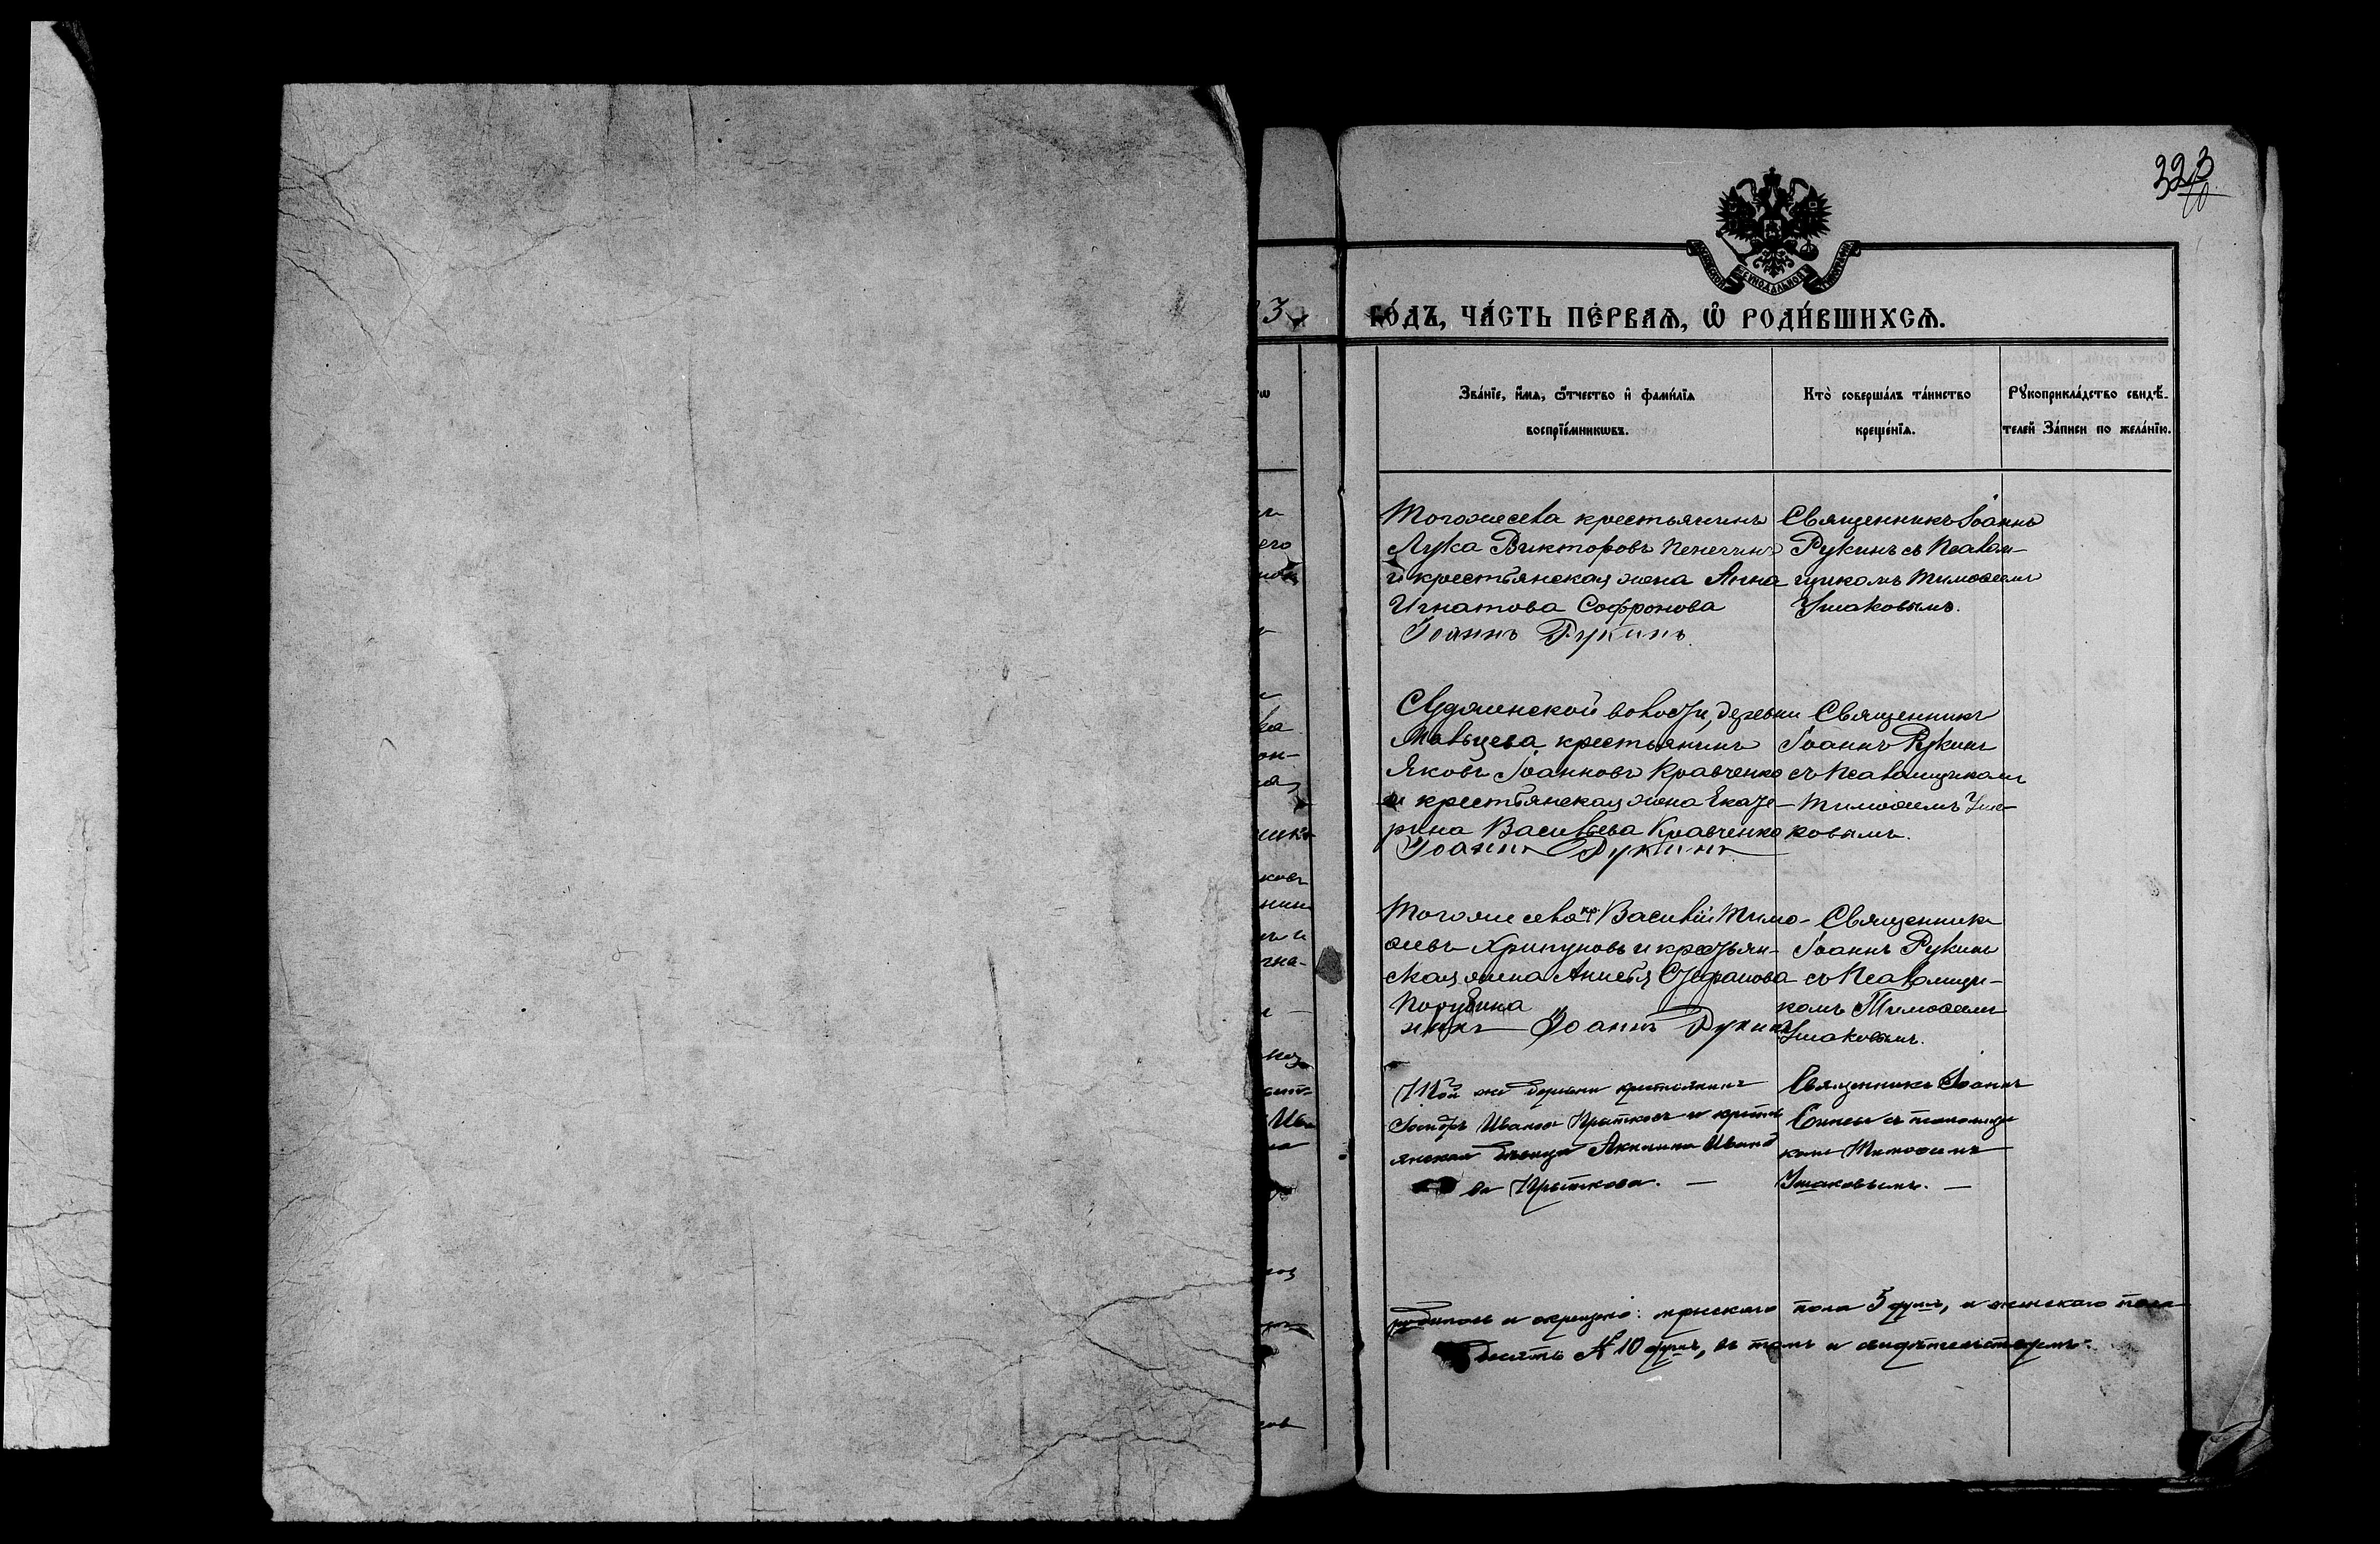 323
10
3
го́дъ, ча́сть пе́рваѧ, ѡ҆ роди́вшихсѧ.
Зва́нїе, и҆́мѧ, ѻ҆́тчество и҆ фами́лїѧ
воспрїе́мникѡвъ.
Кто̀ соверша́лъ та́инство
креще́нїѧ.
Рꙋкоприкла́дство свидѣ́-
телей За́писи по жела́нїю.
Тогоже села крестьянинъ
Лука Викторовъ
и крестьянская жена Анна
Игнатова Софронова
Іоаннъ Рукинъ
Священникъ Іоаннъ
Рукинъ съ Псалом-
щикомъ Тимоѳеемъ
Ушаковымъ.
волости, деревни
крестьянинъ
Яковъ Іоанновъ Кравченко
и крестьянская жена Екате-
рина Васильева Кравченко
Іоаннъ Рукинъ
Священникъ
Іоаннъ Рукинъ
съ Псаломщикомъ
Тимоѳеемъ Уша-
ковымъ.
Тогоже села кр. Василій Тимо-
ѳеевъ Хрипуновъ и крестьян-
ская жена Анисья Стефанова
Іоаннъ Рукинъ
Священникъ
Іоаннъ Рукинъ
съ Псаломщи-
комъ Тимоѳеемъ
Ушаковымъ.
Той же деревни крестьянинъ
Иванов Прытковъ и кресть
янская девица Акилина Ивано
ва Прыткова. —
Священникъ Іоаннъ
съ псаломщи
комъ Тимоѳеемъ
Ушаковымъ. —
родилось и окрещено: мужескаго пола 5 душъ, и женскаго пола
десять № 10 душъ, въ томъ и свидѣтельствуемъ.